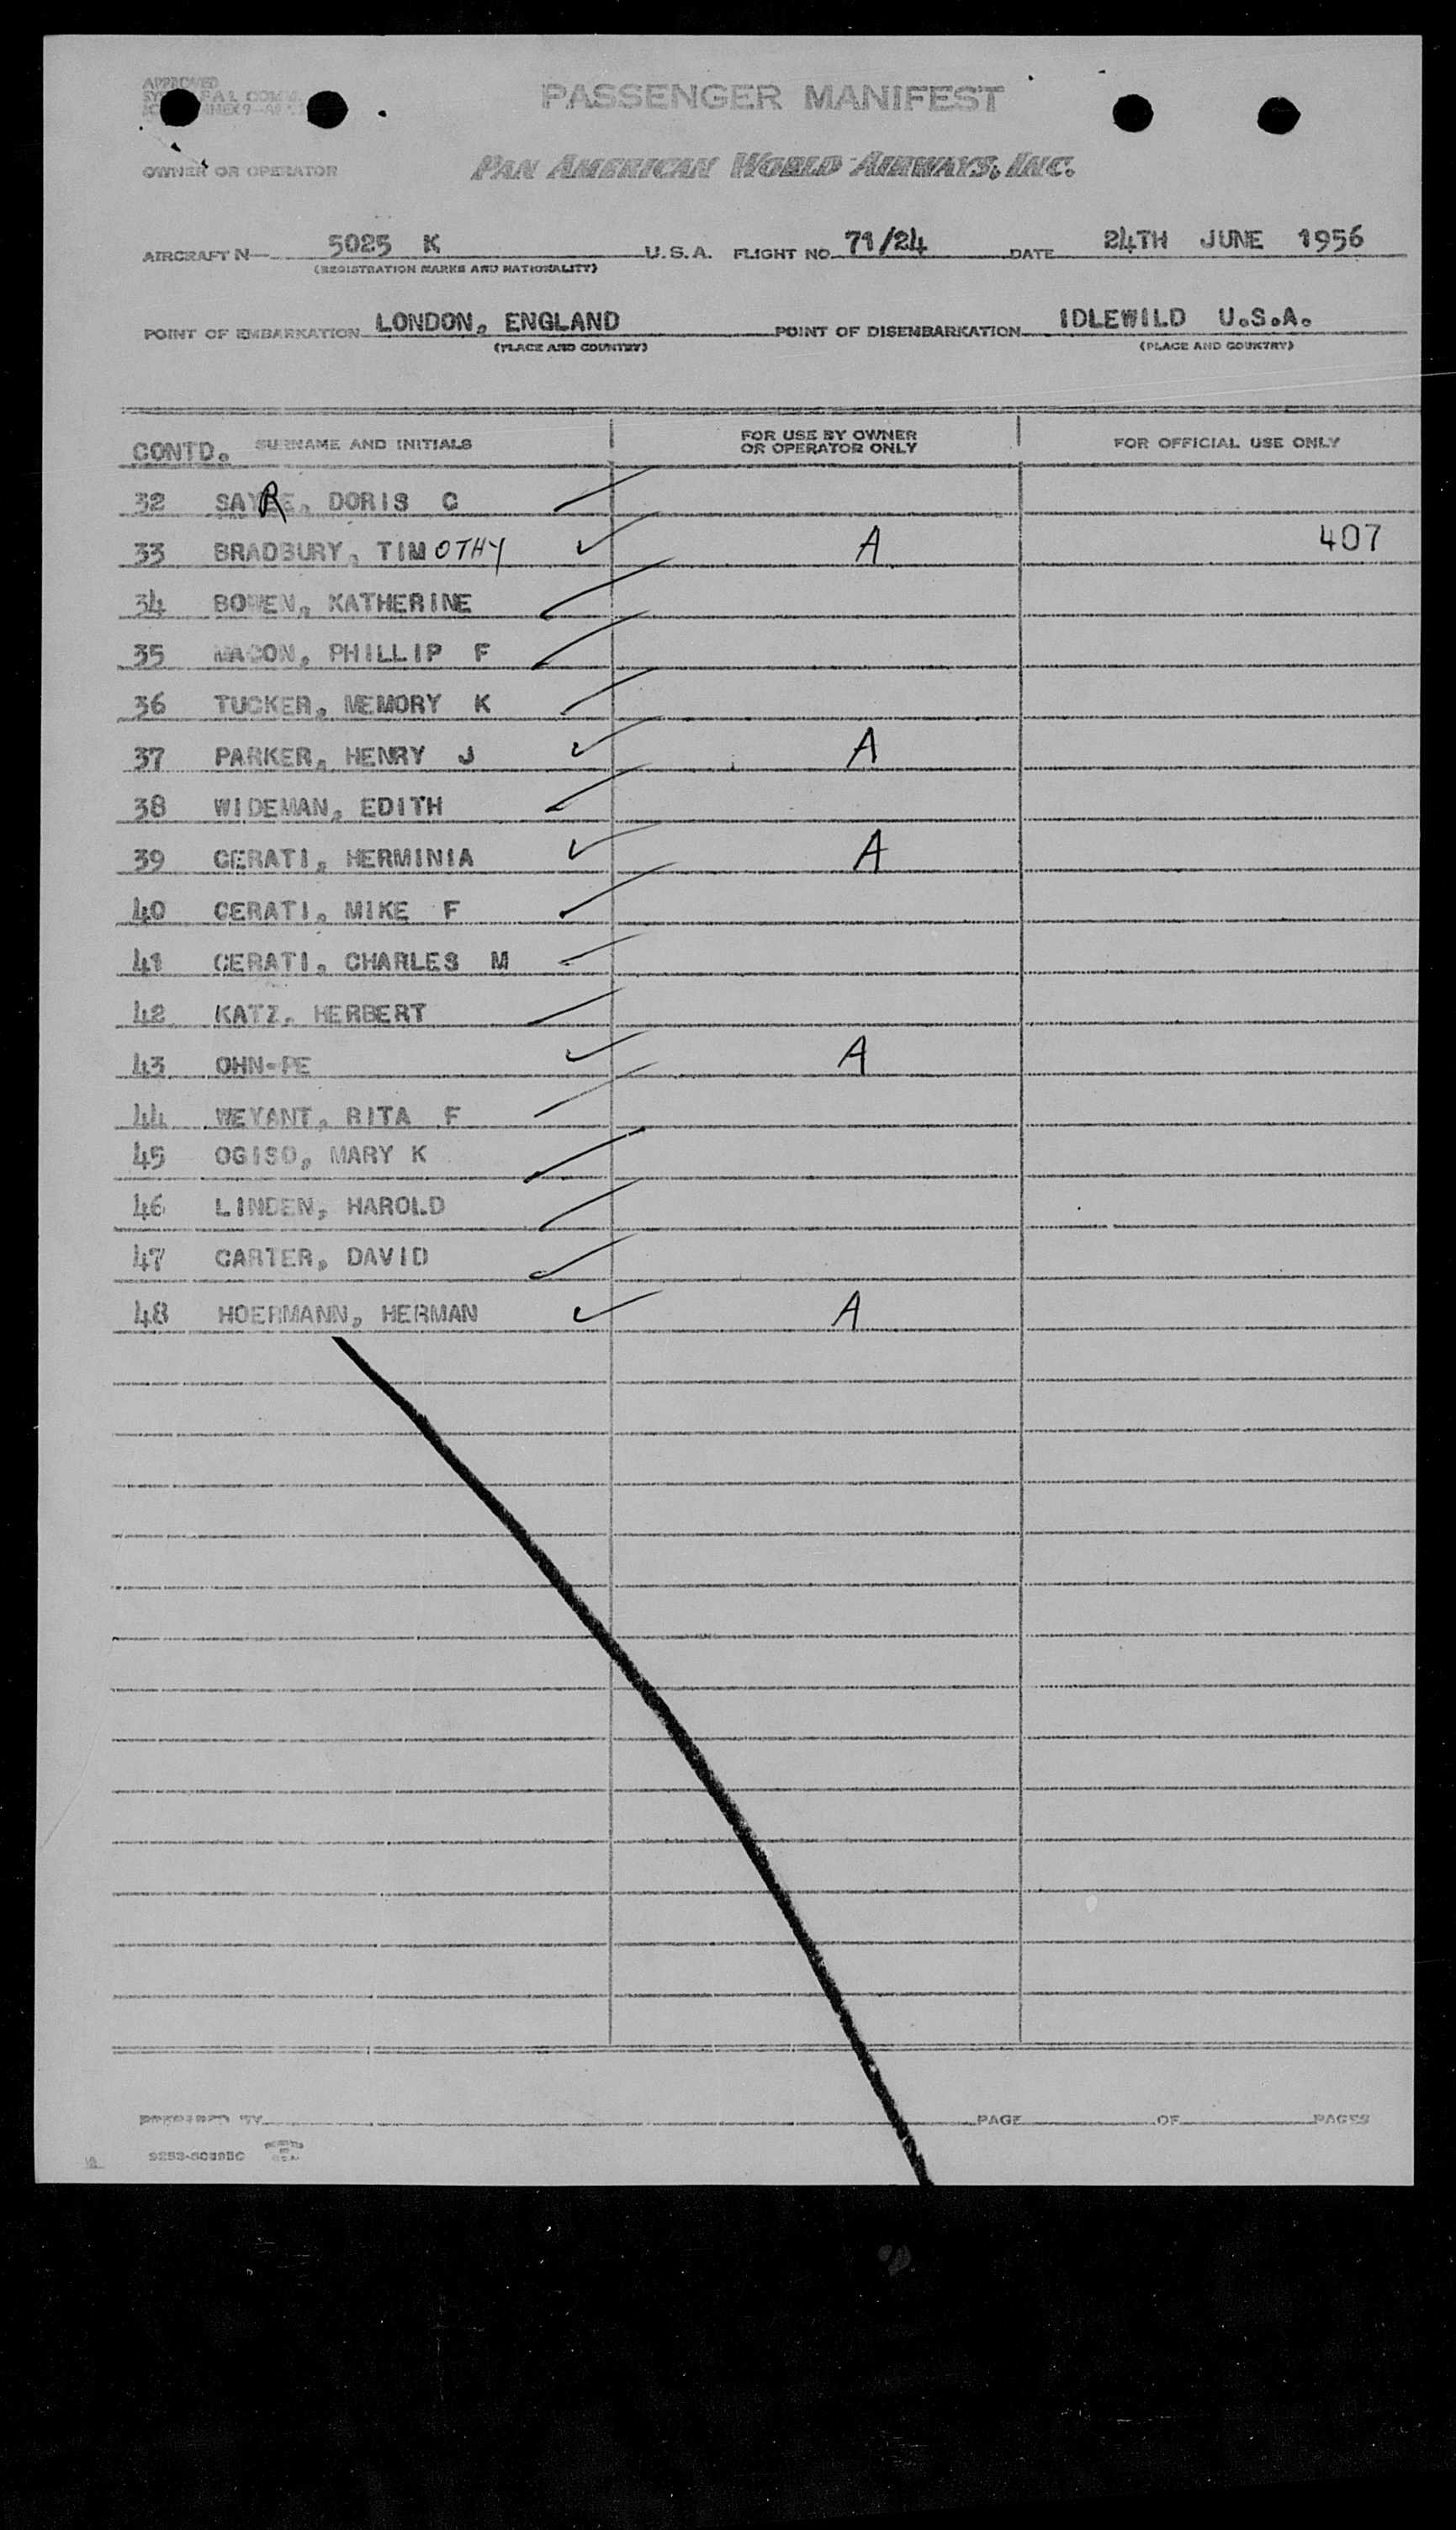 APPROVED
PASSENGER MANIFEST
OWNER OR OPERATOR PAN AMERICAN WORLD AIRWAYS, INC.
AIRCRAFT N— 5025 K U.S.A. FLIGHT NO. 71/24 DATE 24TH JUNE 1956
(REGISTRATION MARKS AND NATIONALITY)
POINT OF EMBARKATION LONDON, ENGLAND POINT OF DISEMBARKATION IDLEWILD U.S.A.
(PLACE AND COUNTRY) (PLACE AND COUNTRY)
CONTD. SURNAME AND INITIALS FOR USE BY OWNER OR OPERATOR ONLY FOR OFFICIAL USE ONLY
32 SAYRE, DORIS C
33 BRADBURY, TIMOTHY A 407
34 BOWEN, KATHERINE
35 MACON, PHILLIP F
36 TUCKER, MEMORY K
37 PARKER, HENRY J A
38 WIDEMAN, EDITH
39 CERATI, HERMINIA A
40 CERATI, MIKE F
41 CERATI, CHARLES M
42 KATZ, HERBERT
43 OHN-PE A
44 WEYANT, RITA F
45 OGISO, MARY K
46 LINDEN, HAROLD
47 CARTER, DAVID
48 HOERMANN, HERMAN A
PREPARED BY PAGE OF PAGES